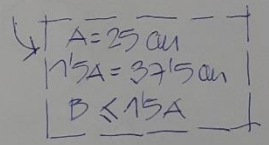 A = 25 cm
1'5A = 37'5 cm
B ⩽ 1'5A